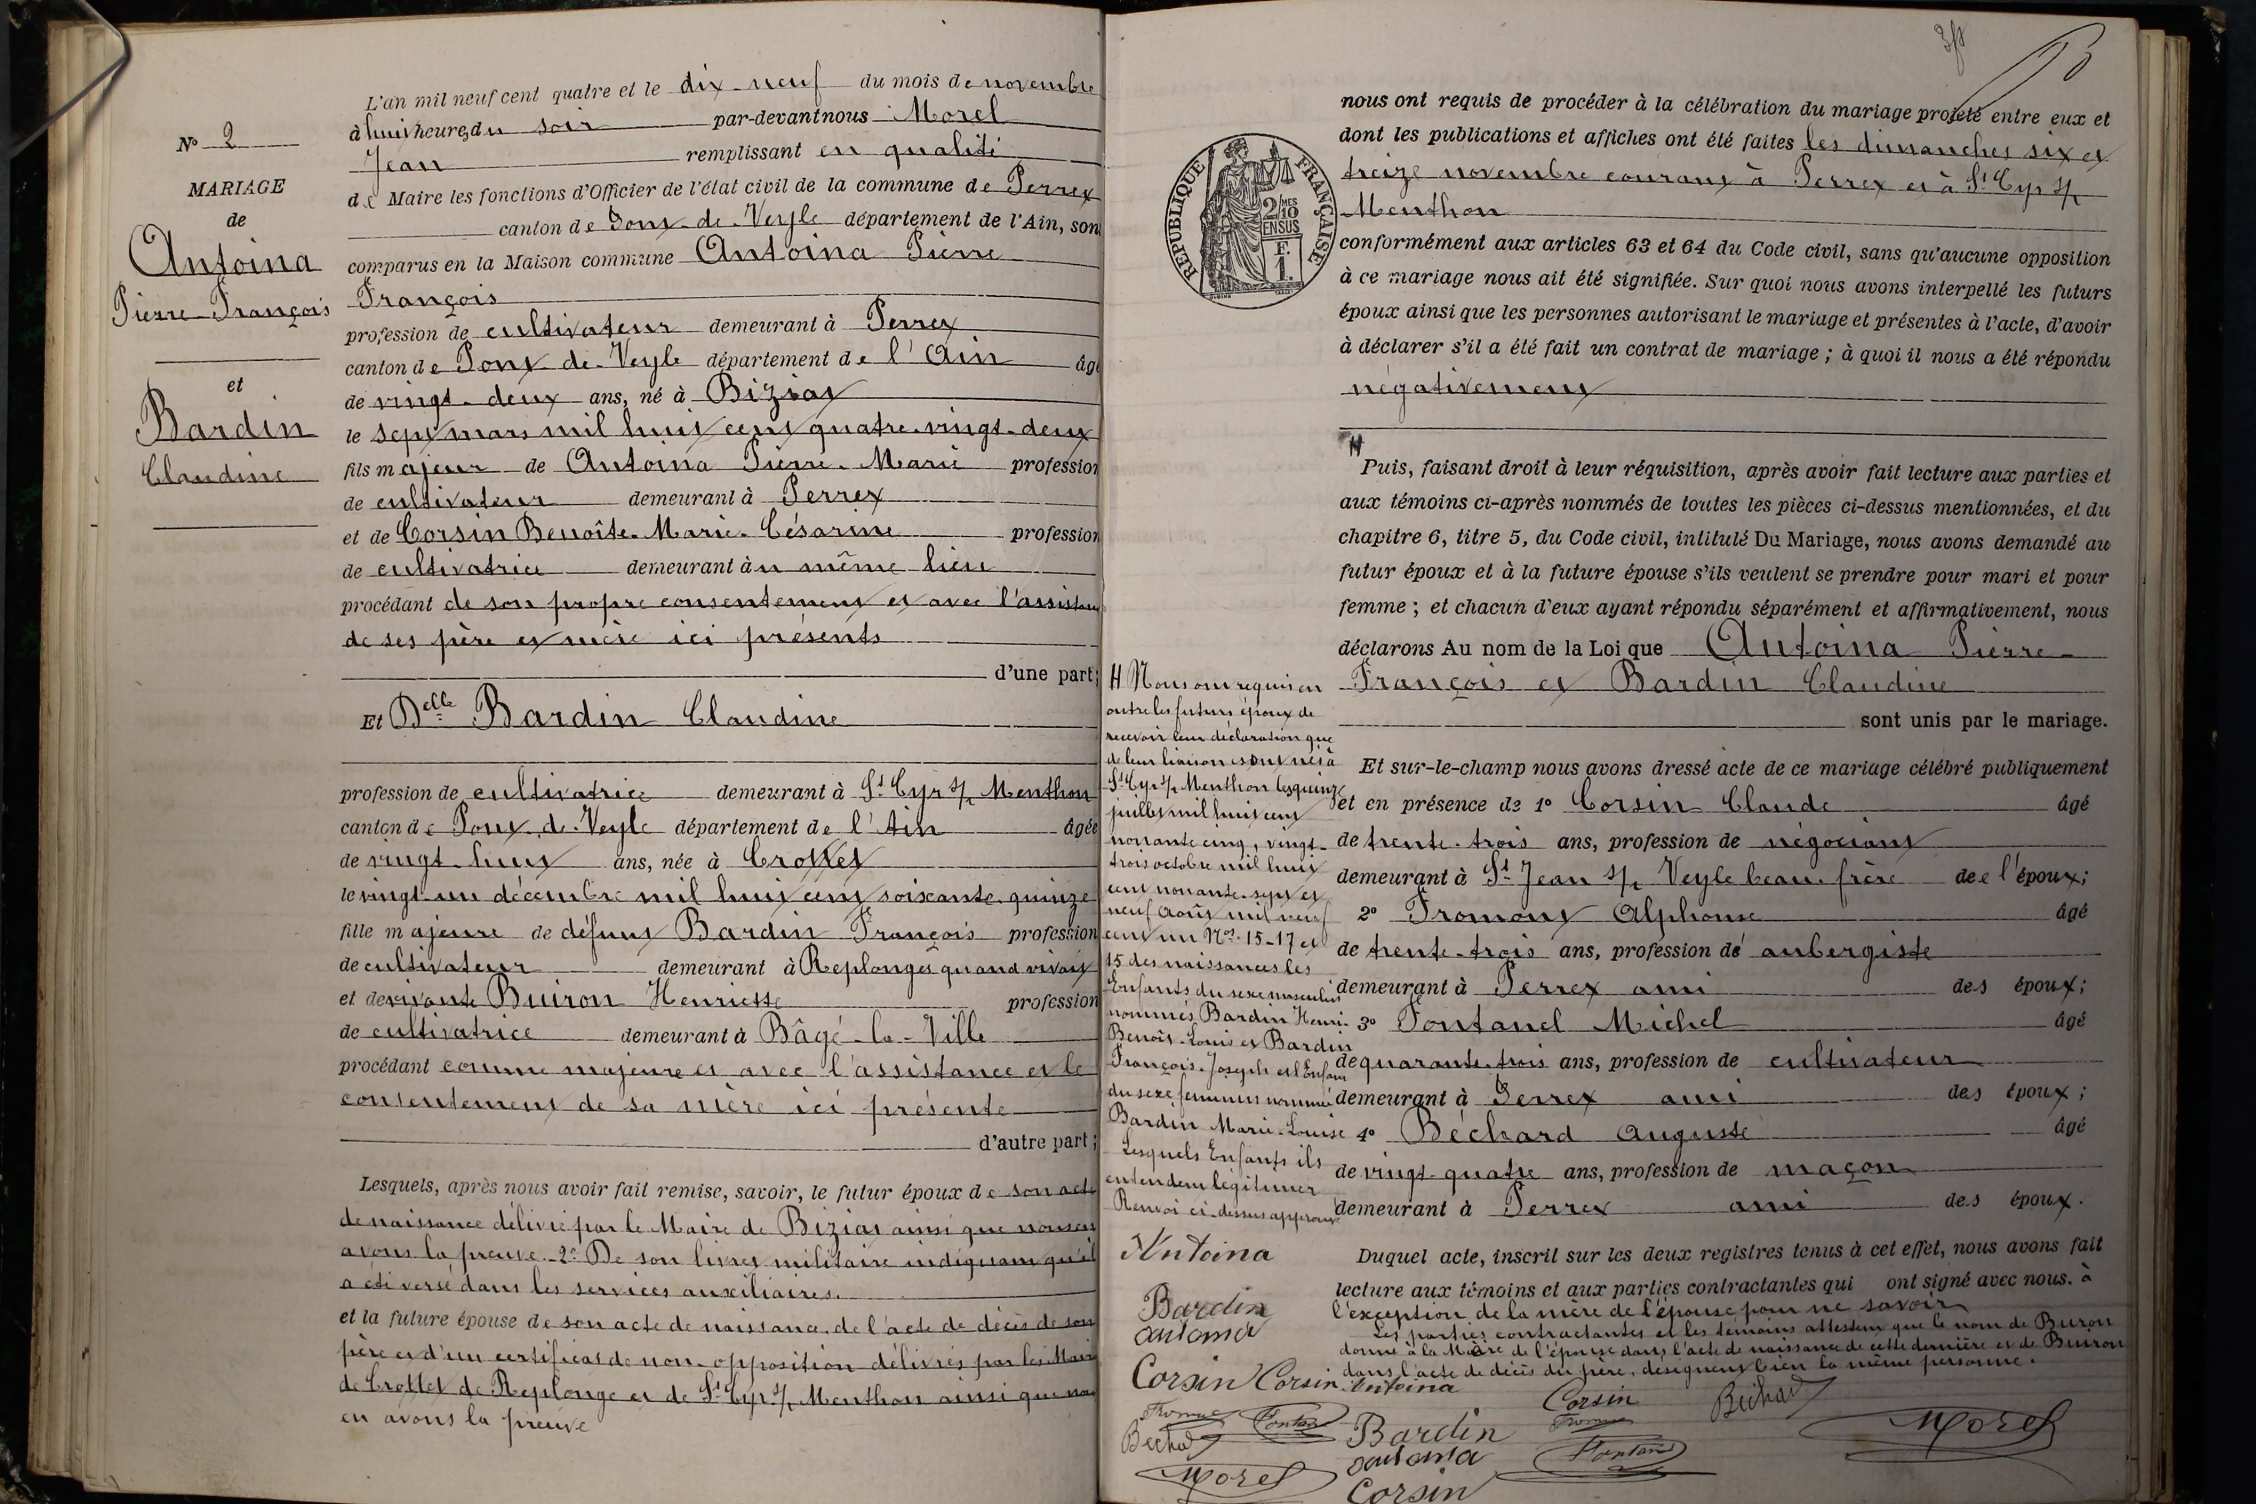 N° 2
MARIAGE
de
Antoina
Pierre-François
et
Bardin
Claudine
L'an mil neuf cent quatre et le dix-neuf du mois de novembre
à huit heures du soir par-devant nous Morel
Jean remplissant en qualité
de Maire les fonctions d'Officier de l'état civil de la commune de Perrex
canton de Pont-de-Veyle département de l'Ain, son
comparus en la Maison commune Antoina Pierre
François
profession de cultivateur demeurant à Perrex
canton de Pont-de-Veyle département de l'Ain âgé
de vingt-deux ans, né à Biziat
le sept mars mil huit cent quatre-vingt-deux
fils majeur de Antoina Pierre-Marie profession
de cultivateur demeurant à Perrex
et de Corsin Benoîte-Marie-Césarine profession
de cultivatrice demeurant au même lieu
procédant de son propre consentement et avec l'assistance
de ses père et mère ici présents
d'une part;
Et Delle Bardin Claudine
profession de cultivatrice demeurant à St Cyr s/ Menthon
canton de Pont-de-Veyle département de l'Ain âgée
de vingt-huit ans, née à Crottet
le vingt-un décembre mil huit cent soixante-quinze
fille majeure de défunt Bardin François profession
de cultivateur demeurant à Replonges quand vivait
et de vivante Buiron Henriette profession
de cultivatrice demeurant à Bâgé-la-Ville
procédant comme majeure et avec l'assistance et le
consentement de sa mère ici présente
d'autre part;
Lesquels, après nous avoir fait remise, savoir, le futur époux de son acte
de naissance délivré par le Maire de Biziat ainsi que nous en
avons la preuve. 2° De son livret militaire indiquant qu'il
a été versé dans les services auxiliaires.
et la future épouse de son acte de naissance, de l'acte de décès de son
père et d'un certificat de non-opposition délivrés par les Maires
de Crottet de Replonge et de St Cyr s/ Menthon ainsi que nous
en avons la preuve
RÉPUBLIQUE FRANÇAISE
2/10 MES
EN SUS
F.
1.
nous ont requis de procéder à la célébration du mariage projeté entre eux et
dont les publications et affiches ont été faites les dimanches six et
treize novembre courant à Perrex et à St Cyr s/
Menthon
conformément aux articles 63 et 64 du Code civil, sans qu'aucune opposition
à ce mariage nous ait été signifiée. Sur quoi nous avons interpellé les futurs
époux ainsi que les personnes autorisant le mariage et présentes à l'acte, d'avoir
à déclarer s'il a été fait un contrat de mariage; à quoi il nous a été répondu
négativement
H
Puis, faisant droit à leur réquisition, après avoir fait lecture aux parties et
aux témoins ci-après nommés de toutes les pièces ci-dessus mentionnées, et du
chapitre 6, titre 5, du Code civil, intitulé Du Mariage, nous avons demandé au
futur époux et à la future épouse s'ils veulent se prendre pour mari et pour
femme; et chacun d'eux ayant répondu séparément et affirmativement, nous
déclarons Au nom de la Loi que Antoina Pierre-
François et Bardin Claudine
sont unis par le mariage.
Et sur-le-champ nous avons dressé acte de ce mariage célébré publiquement
et en présence de 1° Corsin Claude âgé
de trente-trois ans, profession de négociant
demeurant à St Jean s/ Veyle beau-frère de l'époux;
2° Fromont Alphonse âgé
de trente-trois ans, profession de aubergiste
demeurant à Perrex ami des époux;
3° Fontanel Michel âgé
de quarante-trois ans, profession de cultivateur
demeurant à Perrex ami des époux;
4° Béchard Auguste âgé
de vingt-quatre ans, profession de maçon
demeurant à Perrex ami des époux.
Duquel acte, inscrit sur les deux registres tenus à cet effet, nous avons fait
lecture aux témoins et aux parties contractantes qui ont signé avec nous. à
l'exception de la mère de l'épouse pour ne savoir
Les parties contractantes et les témoins attestent que le nom de Buron
donné à la Mère de l'épouse dans l'acte de naissance de cette dernière et de Buiron
dans l'acte de décès du père, désignent bien la même personne.
H Nous ont requis en
outre les futurs époux de
recevoir leur déclaration que
de leur liaison sont nés à
St Cyr s/ Menthon les quinze
juillet mil huit cent
nonante cinq, vingt-
trois octobre mil huit
cent nonante-sept et
neuf août mil neuf
cent un Nos 15-17 et
15 des naissances les
Enfants du sexe masculin
nommés Bardin Henri-
Benoît-Louis et Bardin
François-Joseph et l'Enfant
du sexe féminin nommé
Bardin Marie-Louise
Lesquels Enfants ils
entendent légitimer
Renvoi ci-dessus approuvé
Antoina
Bardin
antoina
Corsin Corsin Antoina
Fromont Fontanel
Bechard
Morel
Bardin
antoina
Corsin
Corsin
Fromont
Fontanel
Bechard
Morel